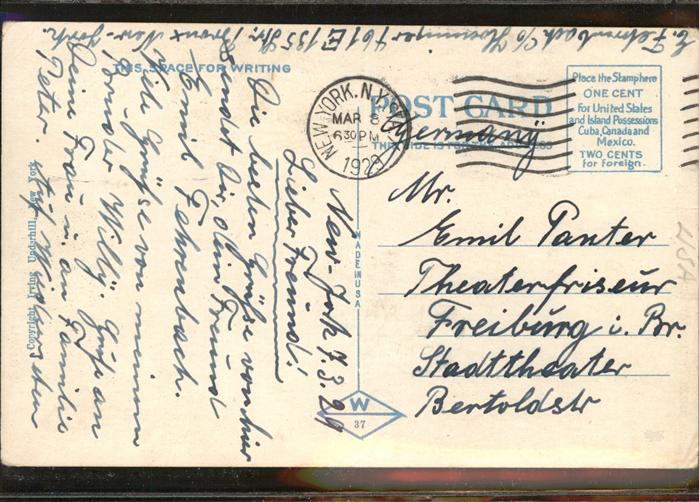 E. Fehrenbach c/o Hoeninger 461 E 135 Str. Bronx New-York.
THIS SPACE FOR WRITING
POST CARD
THIS SIDE IS FOR THE ADDRESS
NEW YORK, N.Y.
MAR 8
630 PM
1929
Place the Stamp here
ONE CENT
For United States
and Island Possessions
Cuba, Canada and
Mexico.
TWO CENTS
for foreign.
Germany
Mr.
Emil Panter
Theaterfriseur
Freiburg i. Br.
Stadttheater
Bertoldstr
New-York 7.3.29
Lieber Freund!
Die besten Grüße von hier
sendet dir dein Freund
Emil Fehrenbach.
viele Grüße von meinem
Bruder Willy. Gruß an
Deine Frau u. an Familie
Peter. Auf Wiedersehen
MADE IN USA
W
37
Copyright Irving Underhill, New York
USA